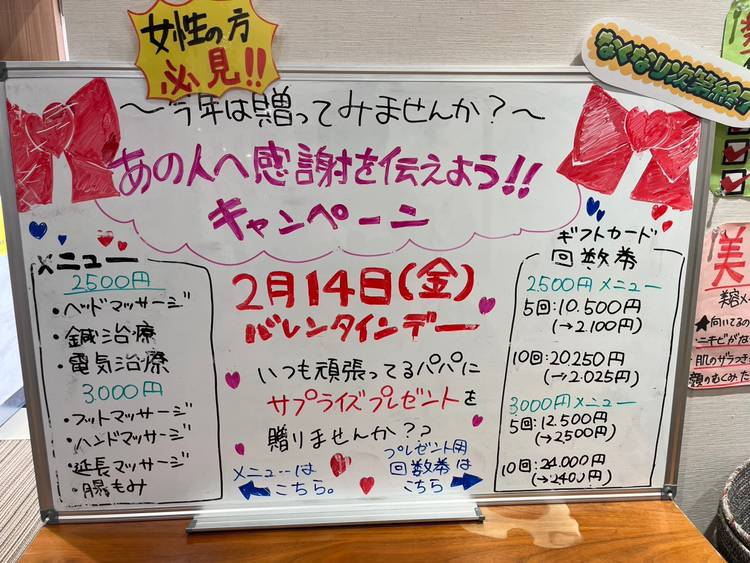 女性の方
必見!!
なくなり次第終了
～今年は贈ってみませんか？～
あの人へ感謝を伝えよう!!
キャンペーン
メニュー
2500円
・ヘッドマッサージ
・鍼治療
・電気治療
3.000円
・フットマッサージ
・ハンドマッサージ
・延長マッサージ
・腸もみ
2月14日(金)
バレンタインデー
いつも頑張ってるパパに
サプライズプレゼントを
贈りませんか？？
メニューは
こちら。
プレゼント用
回数券は
こちら
ギフトカード
回数券
2500円メニュー
5回:10.500円
(→2.100円)
10回:20.250円
(→2.025円)
3000円メニュー
5回:12.500円
(→2500円)
10回:24.000円
(→2400円)
美
美容メ
★向いてるの
・ニキビがな
・肌のザラつき
顔のむくみ、た